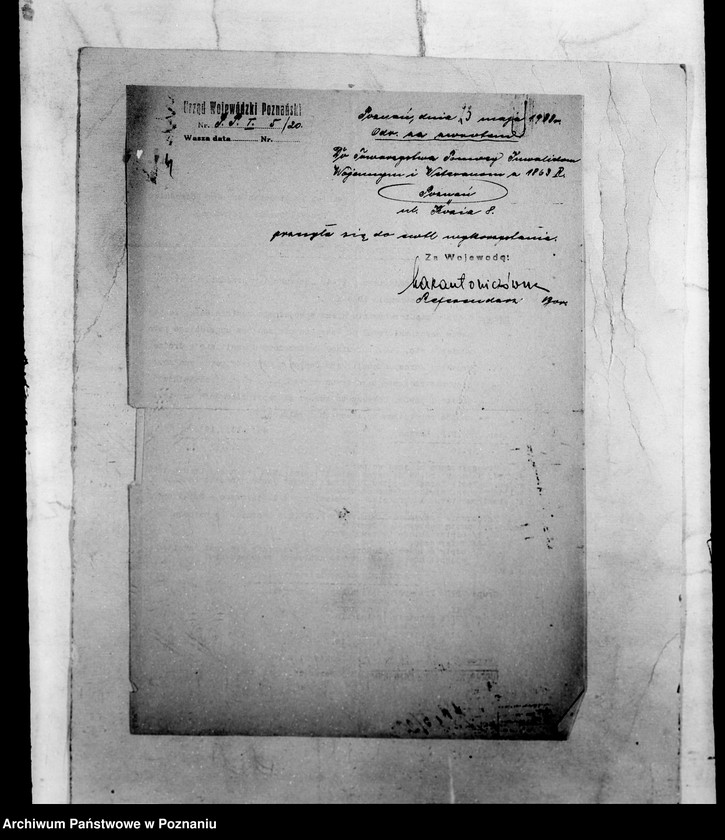 Urząd Wojewódzki Poznański
Nr. P. P. I. 5/20.
Wasza data Nr.
Poznań, dnia 13 maja
Odr. za zwrotem
Do Towarzystwa Pomocy Inwalidom
Wojennym i Weteranom z 1863 R.
Poznań
ul. 8.
przesyła się do wykorzystania.
Za Wojewodę:
Referendarz
Archiwum Państwowe w Poznaniu